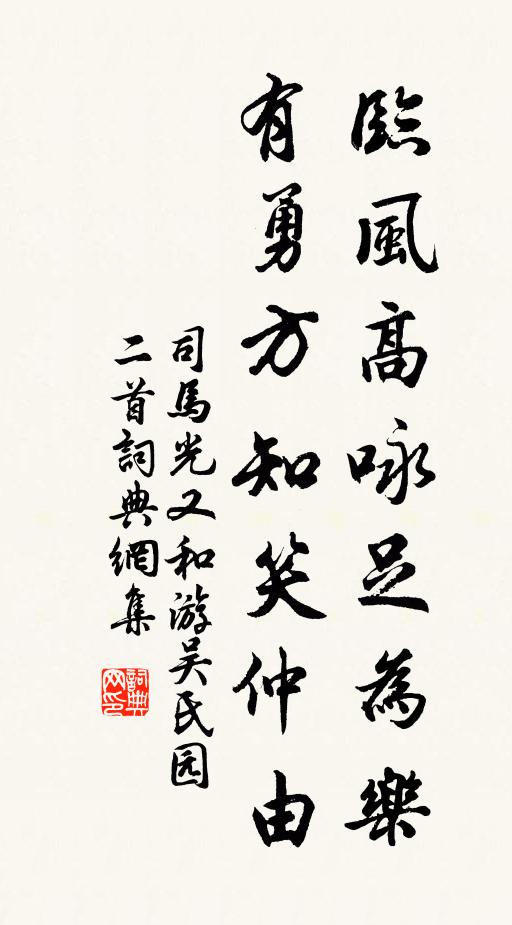 臨風高咏足為樂
有勇方知笑仲由
司馬光又和游吴民园
二首詞典網集
詞典网印